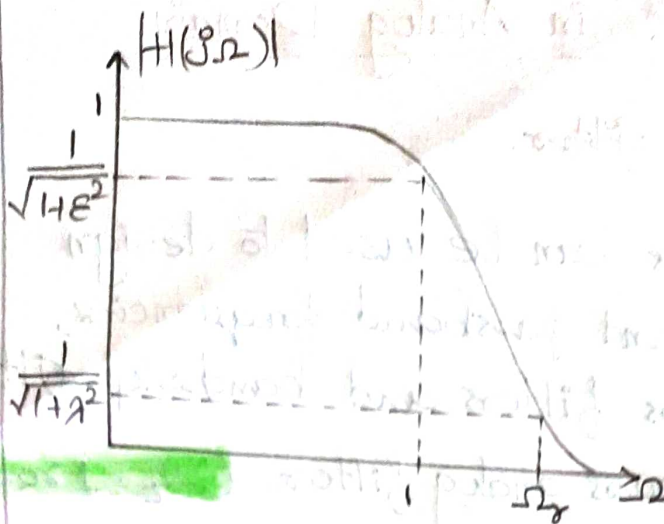 |H(jΩ)|
1
1/√1+ε²
1/√1+λ²
1
Ωr
Ω